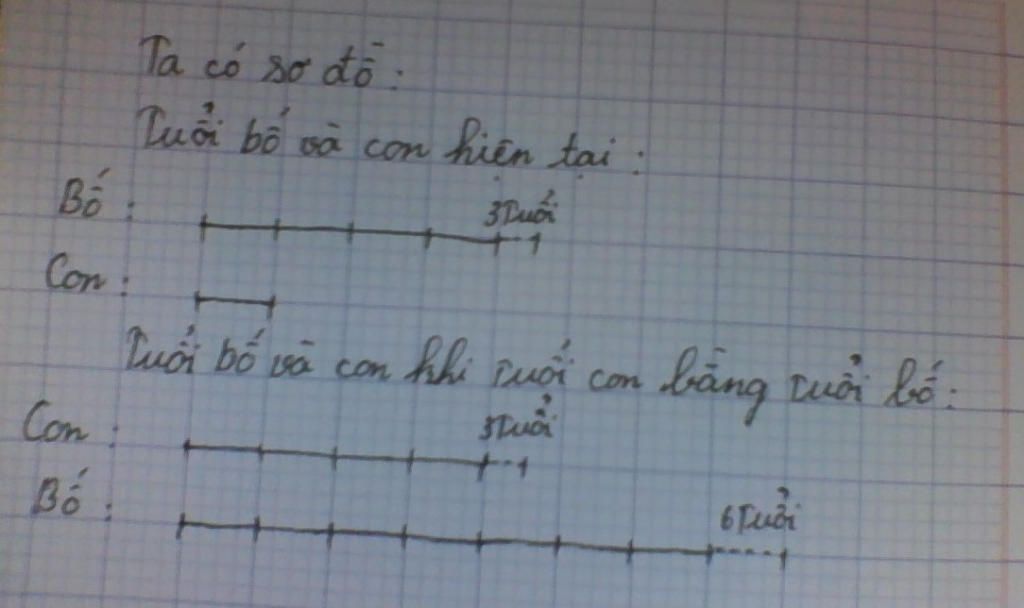 Ta có sơ đồ:
Tuổi bố và con hiện tại:
Bố: 3 Tuổi
Con:
Tuổi bố và con khi tuổi con bằng tuổi bố:
Con: 3 Tuổi
Bố: 6 Tuổi